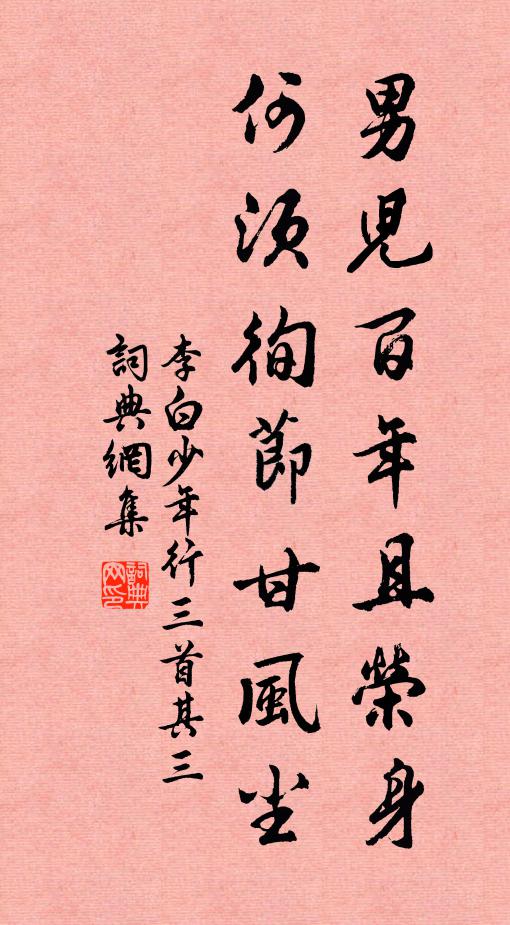 男兒百年且榮身
何須徇節甘風尘
李白少年行三首其三
詞典網集
詞典网印